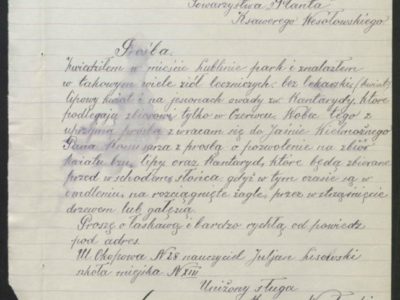 Towarzystwa Planta
Ksawerego Wesołowskiego
Prośba.
Zwiedziłem w mieście Lublinie park i znalazłem
w takowym wiele ziół leczniczych: bez lekarski (kwiat)
lipowy kwiat i na jesionach owady zw. Kantarydy, które
podlegają zbiorowi tylko w Czerwcu. Wobec tego z
uprzejmą prośbą zwracam się do Jaśnie Wielmożnego
Pana z prośbą o pozwolenie na zbiór
kwiatu bzu, lipy oraz Kantaryd, które będą zbierane
przed wschodem słońca gdyż w tym czasie są w
omdleniu, na rozciągnięte żagle, przez wstrząśnięcie
drzewem lub gałęzią.
Proszę o łaskawą i bardzo rychłą odpowiedź
pod adres.
Ul. Okopowa N 28 nauczyciel Juljan Lisowski
szkoła miejska N XIII
Uniżony sługa